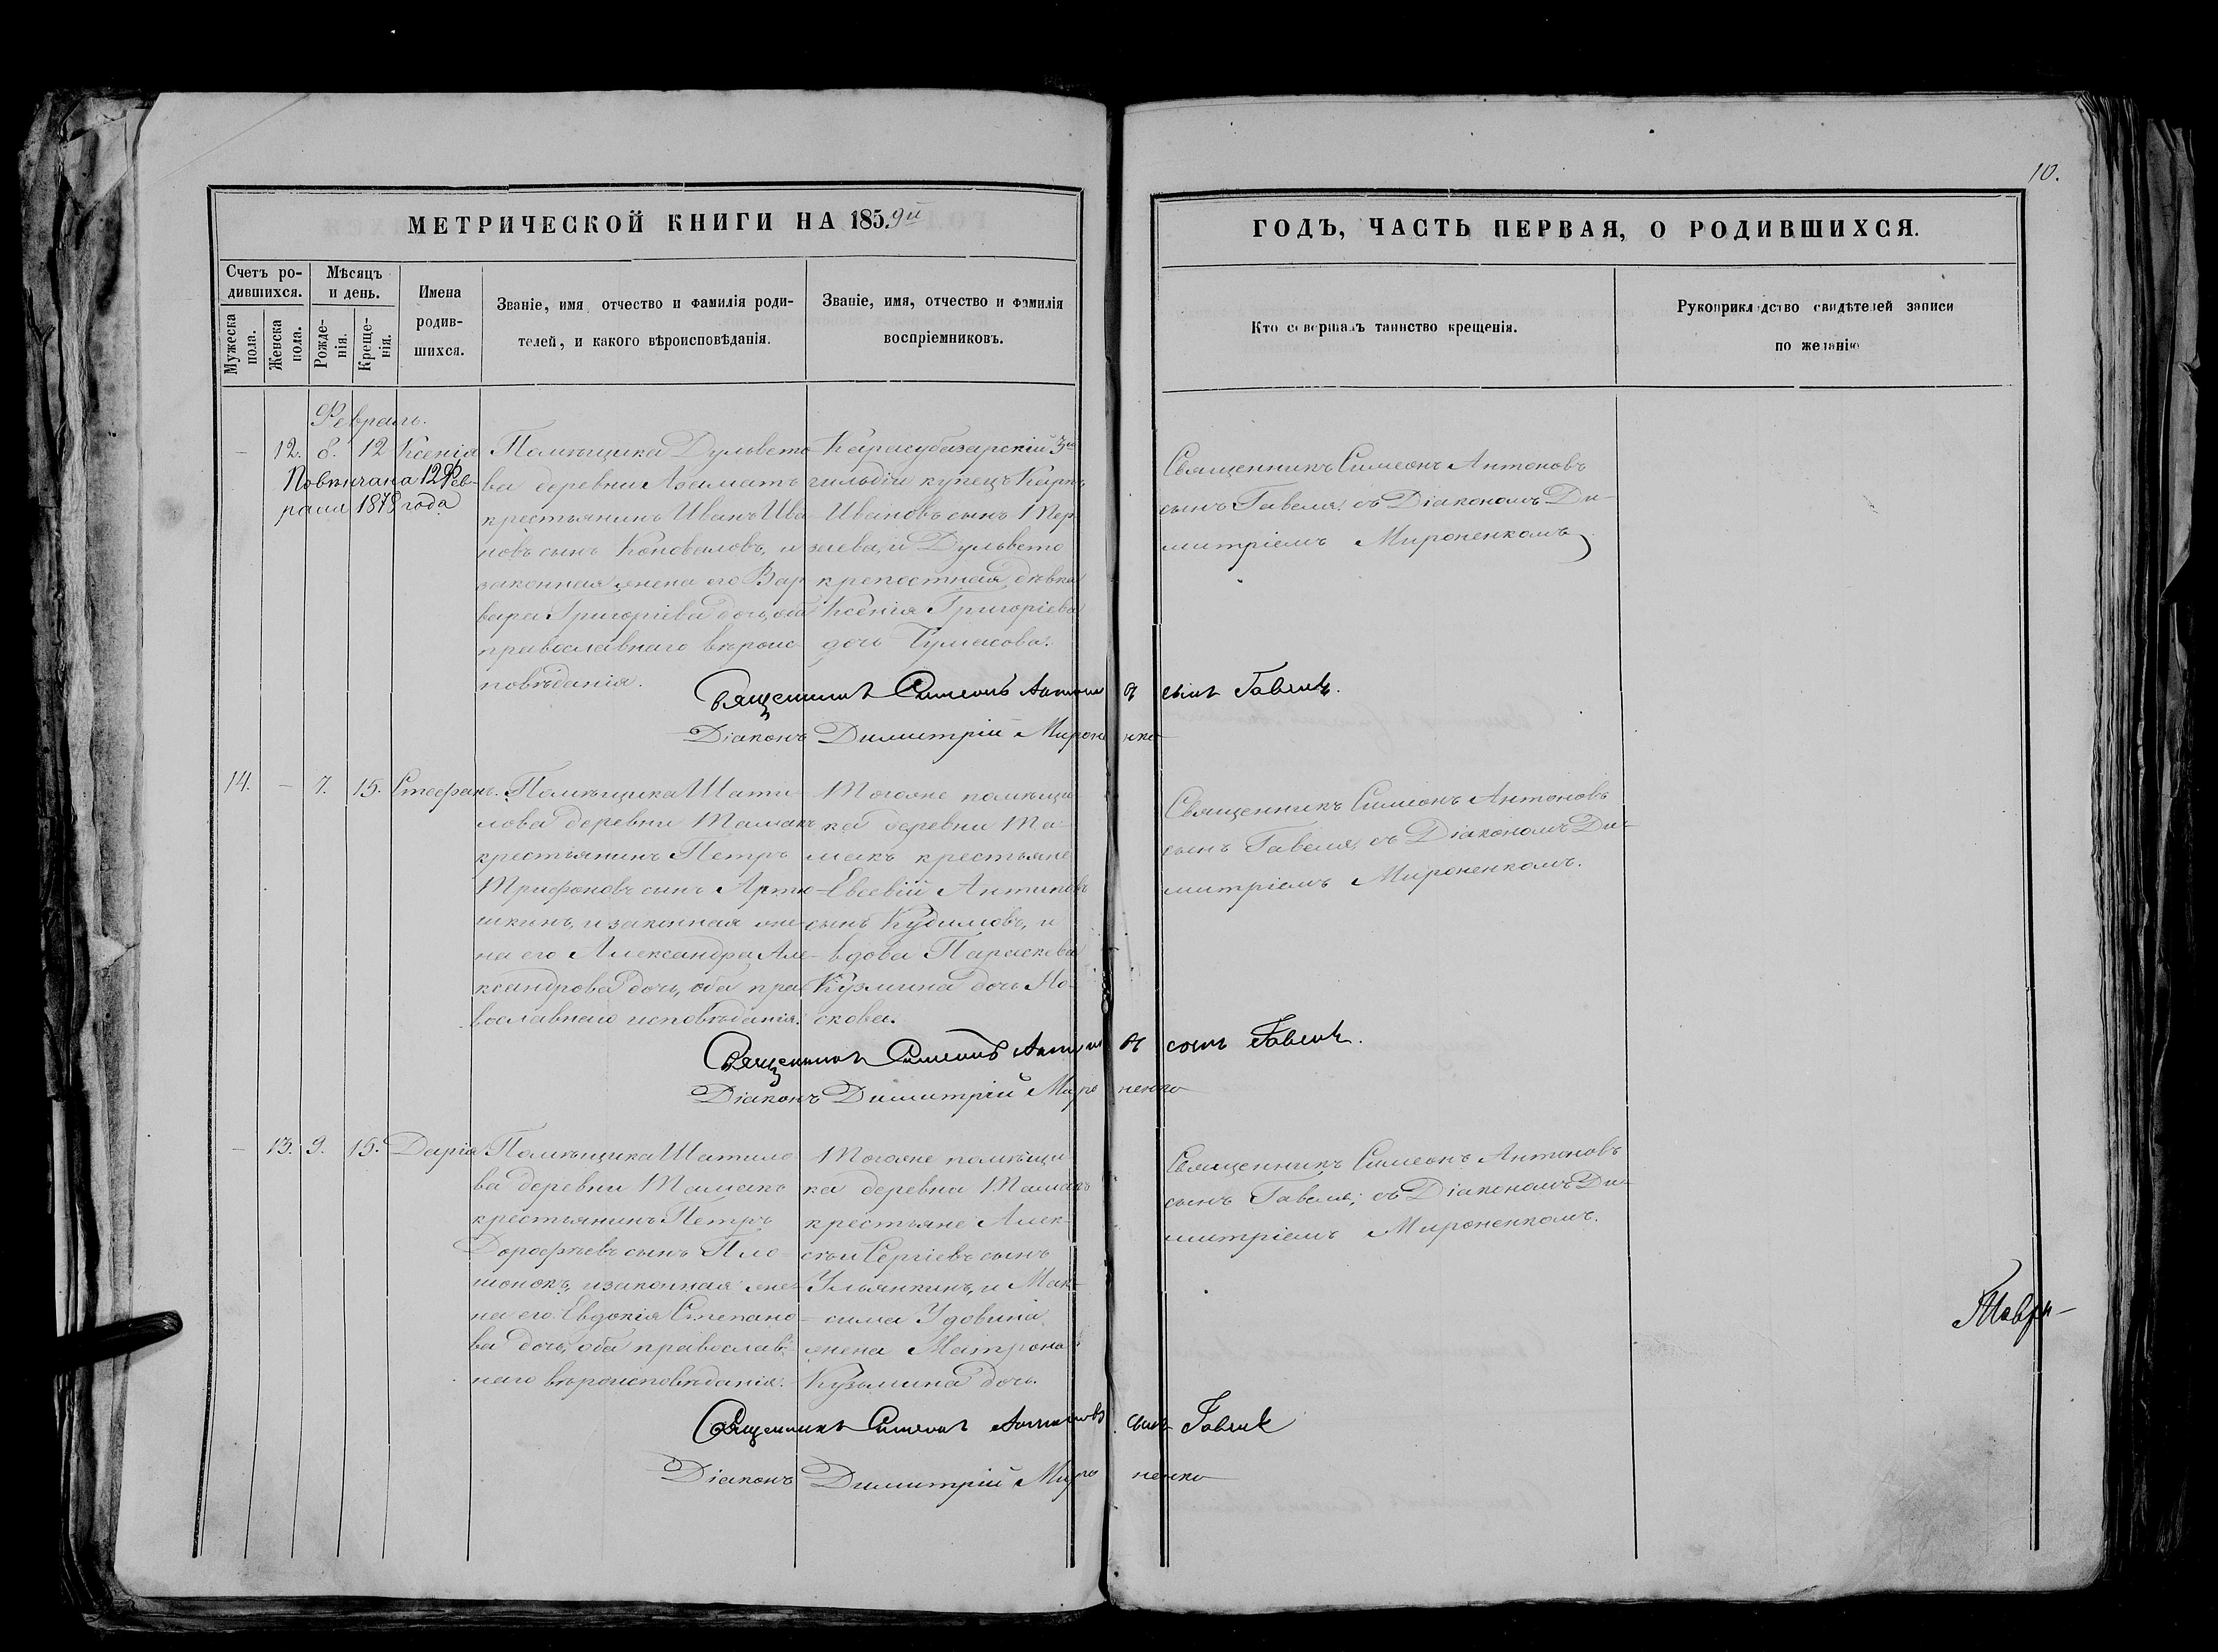 10.
МЕТРИЧЕСКОЙ КНИГИ НА 1859й
ГОДЪ, ЧАСТЬ ПЕРВАЯ, О РОДИВШИХСЯ.
Счетъ ро-
дившихся.
Мужеска
пола.
Женска
пола.
Мѣсяцъ
и день.
Рожде-
нія.
Креще-
нія.
Имена
родив-
шихся.
Званіе, имя отчество и фамилія роди-
телей, и какого вѣроисповѣданія.
Званіе, имя, отчество и фамилія
воспріемниковъ.
Кто совершалъ таинство крещенія.
Рукоприкладство свидѣтелей записи
по желанію
Февраль.
— 12. 8. 12 Ксенія
Повѣнчана 12 Фев-
раля 1878 года
Помѣщика Дульвето-
ва деревни Азематъ
крестьянинъ Иванъ Ива-
новъ сынъ Коноваловъ, и
законная жена его Вар
вара Григоріева дочь, оба
православнаго вѣроис-
повѣданія.
Карасубазарскій 3й
гильдіи купецъ Карпъ
Ивановъ сынъ
и Дульвето
крепостная дѣвка
Ксенія Григоріева
дочь Тумасова.
Священникъ Симеонъ Антоновъ
сынъ Гавеля, съ Діакономъ Ди-
митріемъ Мироненкомъ
Священникъ Симеонъ Антоновъ сынъ Гавеля.
Діаконъ Димитрій Мироненко
14. — 7. 15. Стефанъ.
Помѣщика Шати-
лова деревни Тамакъ
крестьянинъ Петръ
Трифоновъ сынъ Артю-
шкинъ, и законная же-
на его Александра Але-
ксандрова дочь, оба пра
вославнаго исповѣданія.
Тогоже помѣщи
ка деревни Та-
макъ крестьяне
Евсевій Антиповъ
сынъ Кудимовъ, и
вдова Параскева
Кузмина дочь Но-
скова.
Священникъ Симеонъ Антоновъ
сынъ Гавеля, съ Діакономъ Ди-
митріемъ Мироненкомъ.
Священникъ Симеонъ Антоновъ сынъ Гавеля.
Діаконъ Димитрій Мироненко
— 13. 9. 15. Дарія
Помѣщика Шатило-
ва деревни Тамакъ
крестьянинъ Петръ
Дорофѣевъ сынъ
и законная же-
на его Евдокія Степано-
ва дочь, оба православ-
наго вѣроисповѣданія.
Тогоже помѣщи
ка деревни Тамакъ
крестьяне Алек-
сѣй Сергіевъ сынъ
Ульянкинъ, и Мак-
сима Удовина
жена Матрона
Кузьмина дочь.
Священникъ Симеонъ Антоновъ
сынъ Гавеля; съ Діакономъ Ди-
митріемъ Мироненкомъ.
Священникъ Симеонъ Антоновъ сынъ Гавеля
Діаконъ Димитрій Мироненко
Таври-